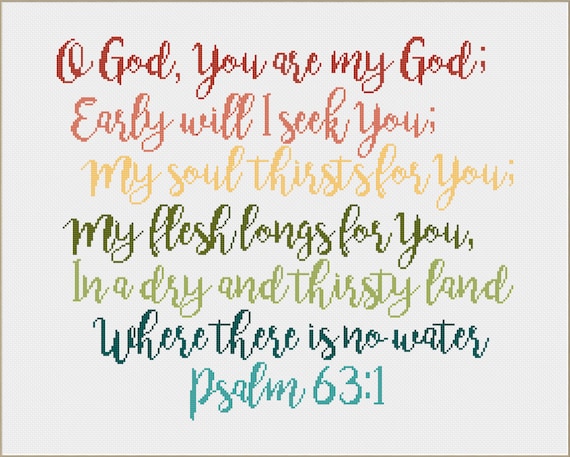 O God, You are my God;
Early will I seek You;
My soul thirsts for You;
My flesh longs for You,
In a dry and thirsty land
Where there is no water
Psalm 63:1